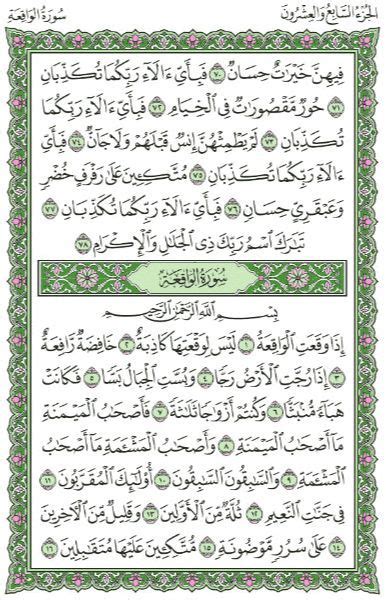 الجزء السابع والعشرون
سورة الواقعة
فِيهِنَّ خَيْرَٰتٌ حِسَانٌ ٧٠ فَبِأَيِّ ءَالَآءِ رَبِّكُمَا تُكَذِّبَانِ
٧١ حُورٌ مَّقْصُورَٰتٌ فِي ٱلْخِيَامِ ٧٢ فَبِأَيِّ ءَالَآءِ رَبِّكُمَا
تُكَذِّبَانِ ٧٣ لَمْ يَطْمِثْهُنَّ إِنسٌ قَبْلَهُمْ وَلَا جَآنٌّ ٧٤ فَبِأَيِّ
ءَالَآءِ رَبِّكُمَا تُكَذِّبَانِ ٧٥ مُتَّكِـِٔينَ عَلَىٰ رَفْرَفٍ خُضْرٍ
وَعَبْقَرِيٍّ حِسَانٍ ٧٦ فَبِأَيِّ ءَالَآءِ رَبِّكُمَا تُكَذِّبَانِ ٧٧
تَبَٰرَكَ ٱسْمُ رَبِّكَ ذِي ٱلْجَلَٰلِ وَٱلْإِكْرَامِ ٧٨
سُورَةُ الوَاقِعَةِ
بِسْمِ ٱللَّهِ ٱلرَّحْمَٰنِ ٱلرَّحِيمِ
إِذَا وَقَعَتِ ٱلْوَاقِعَةُ ١ لَيْسَ لِوَقْعَتِهَا كَاذِبَةٌ ٢ خَافِضَةٌ رَّافِعَةٌ
٣ إِذَا رُجَّتِ ٱلْأَرْضُ رَجًّا ٤ وَبُسَّتِ ٱلْجِبَالُ بَسًّا ٥ فَكَانَتْ
هَبَآءً مُّنۢبَثًّا ٦ وَكُنتُمْ أَزْوَٰجًا ثَلَٰثَةً ٧ فَأَصْحَٰبُ ٱلْمَيْمَنَةِ
مَآ أَصْحَٰبُ ٱلْمَيْمَنَةِ ٨ وَأَصْحَٰبُ ٱلْمَشْـَٔمَةِ مَآ أَصْحَٰبُ
ٱلْمَشْـَٔمَةِ ٩ وَٱلسَّٰبِقُونَ ٱلسَّٰبِقُونَ ١٠ أُوْلَٰٓئِكَ ٱلْمُقَرَّبُونَ ١١
فِي جَنَّٰتِ ٱلنَّعِيمِ ١٢ ثُلَّةٌ مِّنَ ٱلْأَوَّلِينَ ١٣ وَقَلِيلٌ مِّنَ ٱلْءَاخِرِينَ
١٤ عَلَىٰ سُرُرٍ مَّوْضُونَةٍ ١٥ مُّتَّكِـِٔينَ عَلَيْهَا مُتَقَٰبِلِينَ ١٦